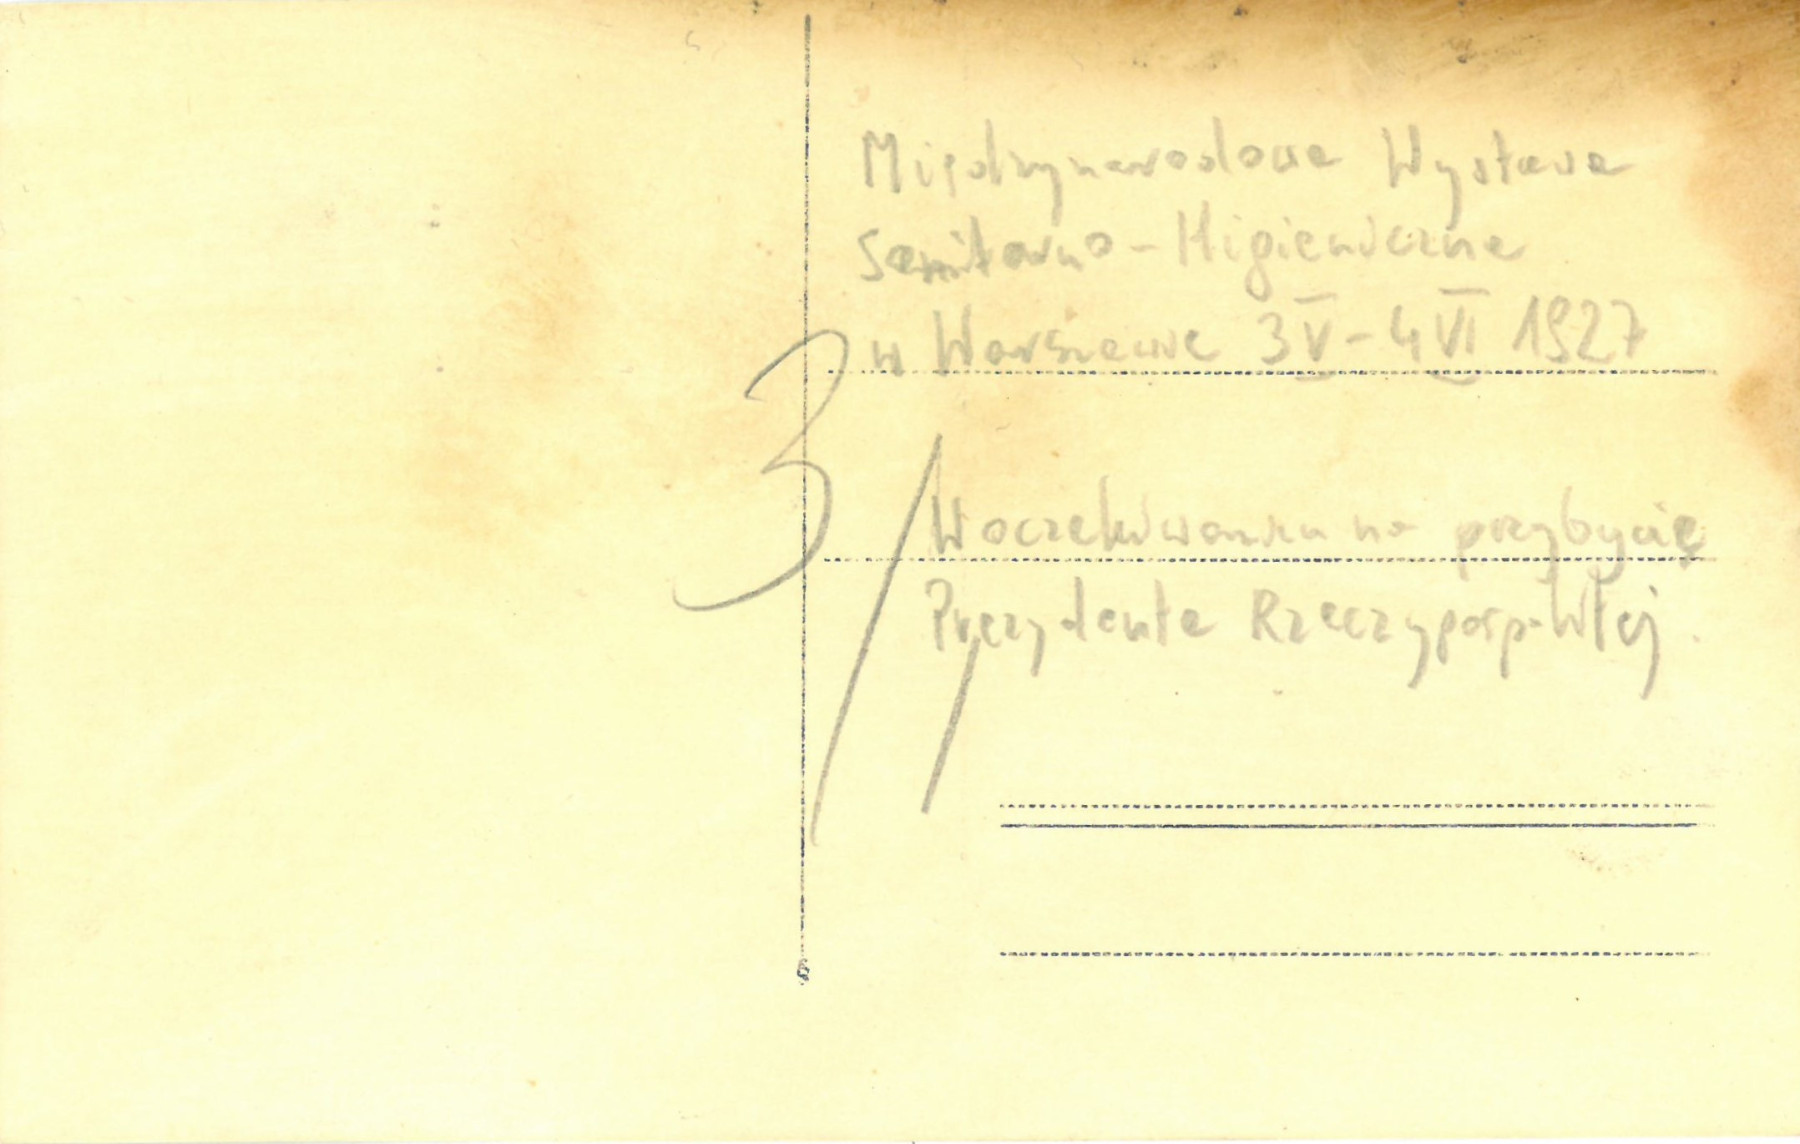 Międzynarodowa Wystawa
Sanitarno-Higieniczna
w Warszawie 3 V - 4 VI 1927
3/
W oczekiwaniu na przybycie
Prezydenta Rzeczypospolitej.